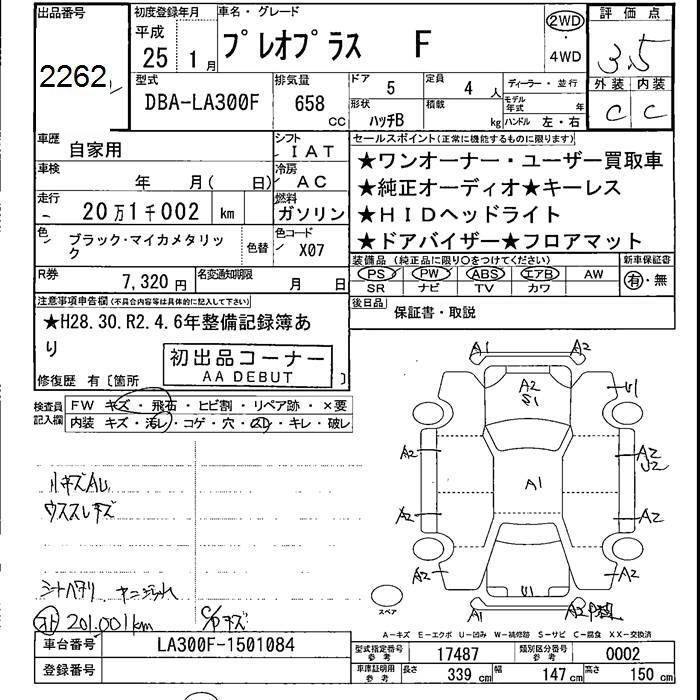 出品番号
2262
初度登録年月
平成
25 1月
車名・グレード
プレオプラス F
2WD
・
4WD
評価点
3.5
外装 内装
C C
型式
DBA-LA300F
排気量
658
CC
ドア
5
定員
4 人
ディーラー・並行
形状
ハッチB
積載
kg
モデル
年式 年
ハンドル 左・右
車歴
自家用
シフト
IAT
車検
年 月( 日)
冷房
AC
走行
20万1千002 km
燃料
ガソリン
色
ブラック・マイカメタリッ
ク
色替
色コード
X07
R券
7,320円
名変通知期限
月 日
セールスポイント(正常に機能するものに限ります)
★ワンオーナー・ユーザー買取車
★純正オーディオ★キーレス
★HIDヘッドライト
★ドアバイザー★フロアマット
装備品(純正品に限り○をつけてください)
PS PW ABS エアB AW
SR ナビ TV カワ
新車保証書
有・無
後日品
保証書・取説
注意事項申告欄(不具合内容等は具体的に記入して下さい)
★H28.30.R2.4.6年整備記録簿あ
り
初出品コーナー
AA DEBUT
修復歴 有〔箇所 〕
検査員
記入欄
FW キズ・飛石・ヒビ割・リペア跡・×要
内装 キズ・汚レ・コゲ・穴・スレ・キレ・破レ
ウススレキズ
シートヘタリ
201,001km
A1 A2
A2
S1
U1
A2
A2
U2
A1
A2
A2
A2
A2
U1
A1
スペア
A-キズ E-エクボ U-凹み W-補修跡 S-サビ C-腐食 XX-交換済
車台番号
LA300F-1501084
登録番号
型式指定番号
参考
17487
類別区分番号
参考
0002
車庫証明用
参考
長さ
339 cm
幅
147 cm
高さ
150 cm